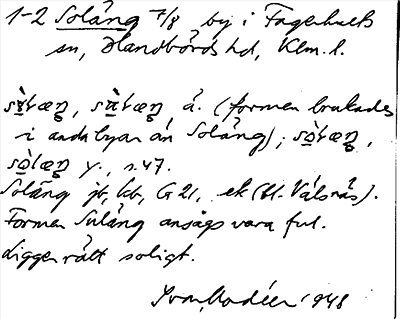 1-2 Solång 7/8 by i Fagerhults
sn, Handbörds hd, Klm. l.
å. (formen brukades
i andra byar än Solång);
y., s. 47.
Solång jb, kb, G 21, ek (bl. Välsnäs).
Formen Sulång ansågs vara ful.
Ligger rätt soligt.
Ivar Modéer 1948